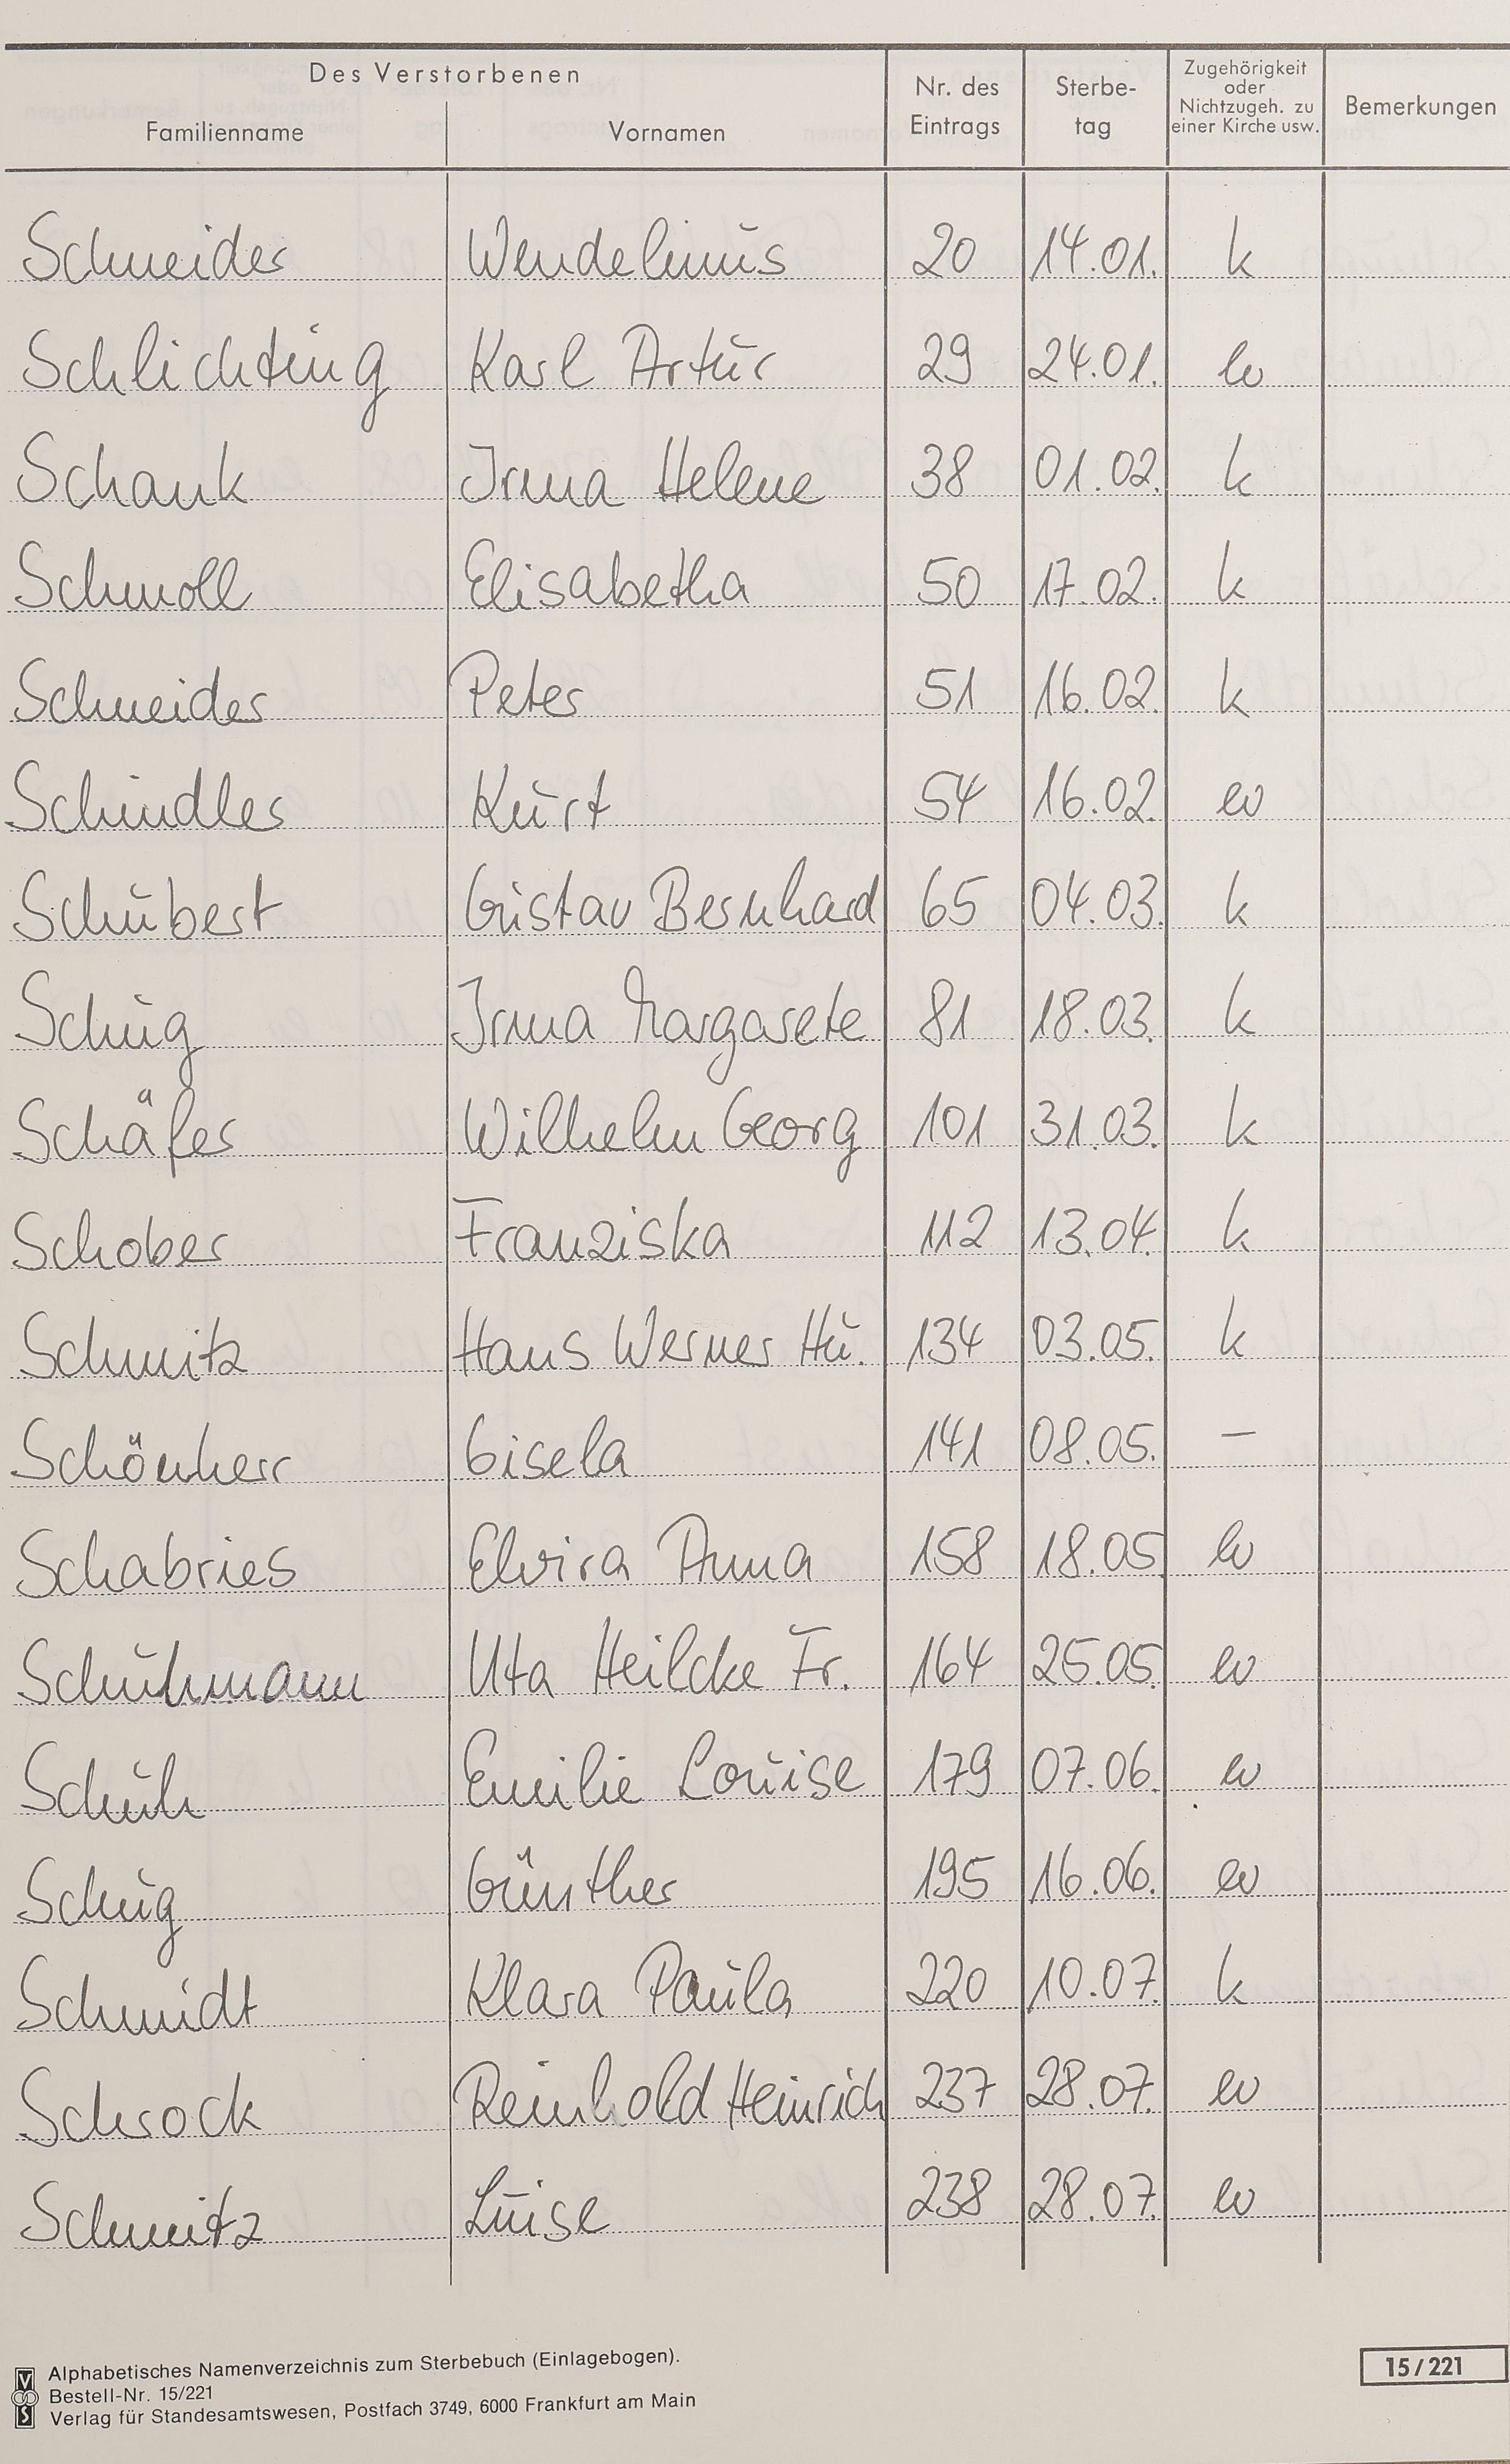 Des Verstorbenen
Familienname Vornamen Nr. des Eintrags Sterbe-tag Zugehörigkeit oder Nichtzugeh. zu einer Kirche usw. Bemerkungen
Schneider Wendelinus 20 14.01. k
Schlichting Karl Artur 29 24.01. ev
Schank Irma Helene 38 01.02. k
Schmoll Elisabetha 50 17.02. k
Schneider Peter 51 16.02. k
Schindler Kurt 54 16.02. ev
Schubert Gustav Bernhard 65 04.03. k
Schug Irma Margarete 81 18.03. k
Schäfer Wilhelm Georg 101 31.03. k
Schober Franziska 112 13.04. k
Schmitz Hans Werner Hu. 134 03.05. k
Schönherr Gisela 141 08.05. —
Schabries Elvira Anna 158 18.05 ev
Schuhmann Uta Heilcke Fr. 164 25.05. ev
Schuh Emilie Louise 179 07.06. ev
Schug Günther 195 16.06. ev
Schmidt Klara Paula 220 10.07. k
Schrock Reinhold Heinrich 237 28.07. ev
Schmitz Luise 238 28.07. ev
Alphabetisches Namenverzeichnis zum Sterbebuch (Einlagebogen).
Bestell-Nr. 15/221
Verlag für Standesamtswesen, Postfach 3749, 6000 Frankfurt am Main
15/221
V
S